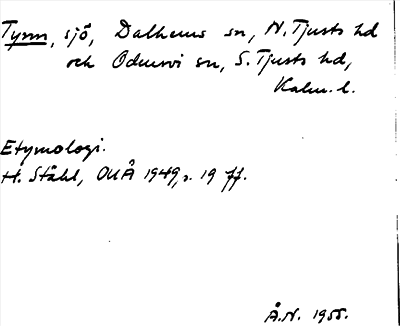 Tynn, sjö, Dalhems sn, N. Tjusts hd
och Odensvi sn, S. Tjusts hd,
Kalm. l.
Etymologi.
H. Ståhl, OUÅ 1949, s. 19 ff.
Å.N. 1955.